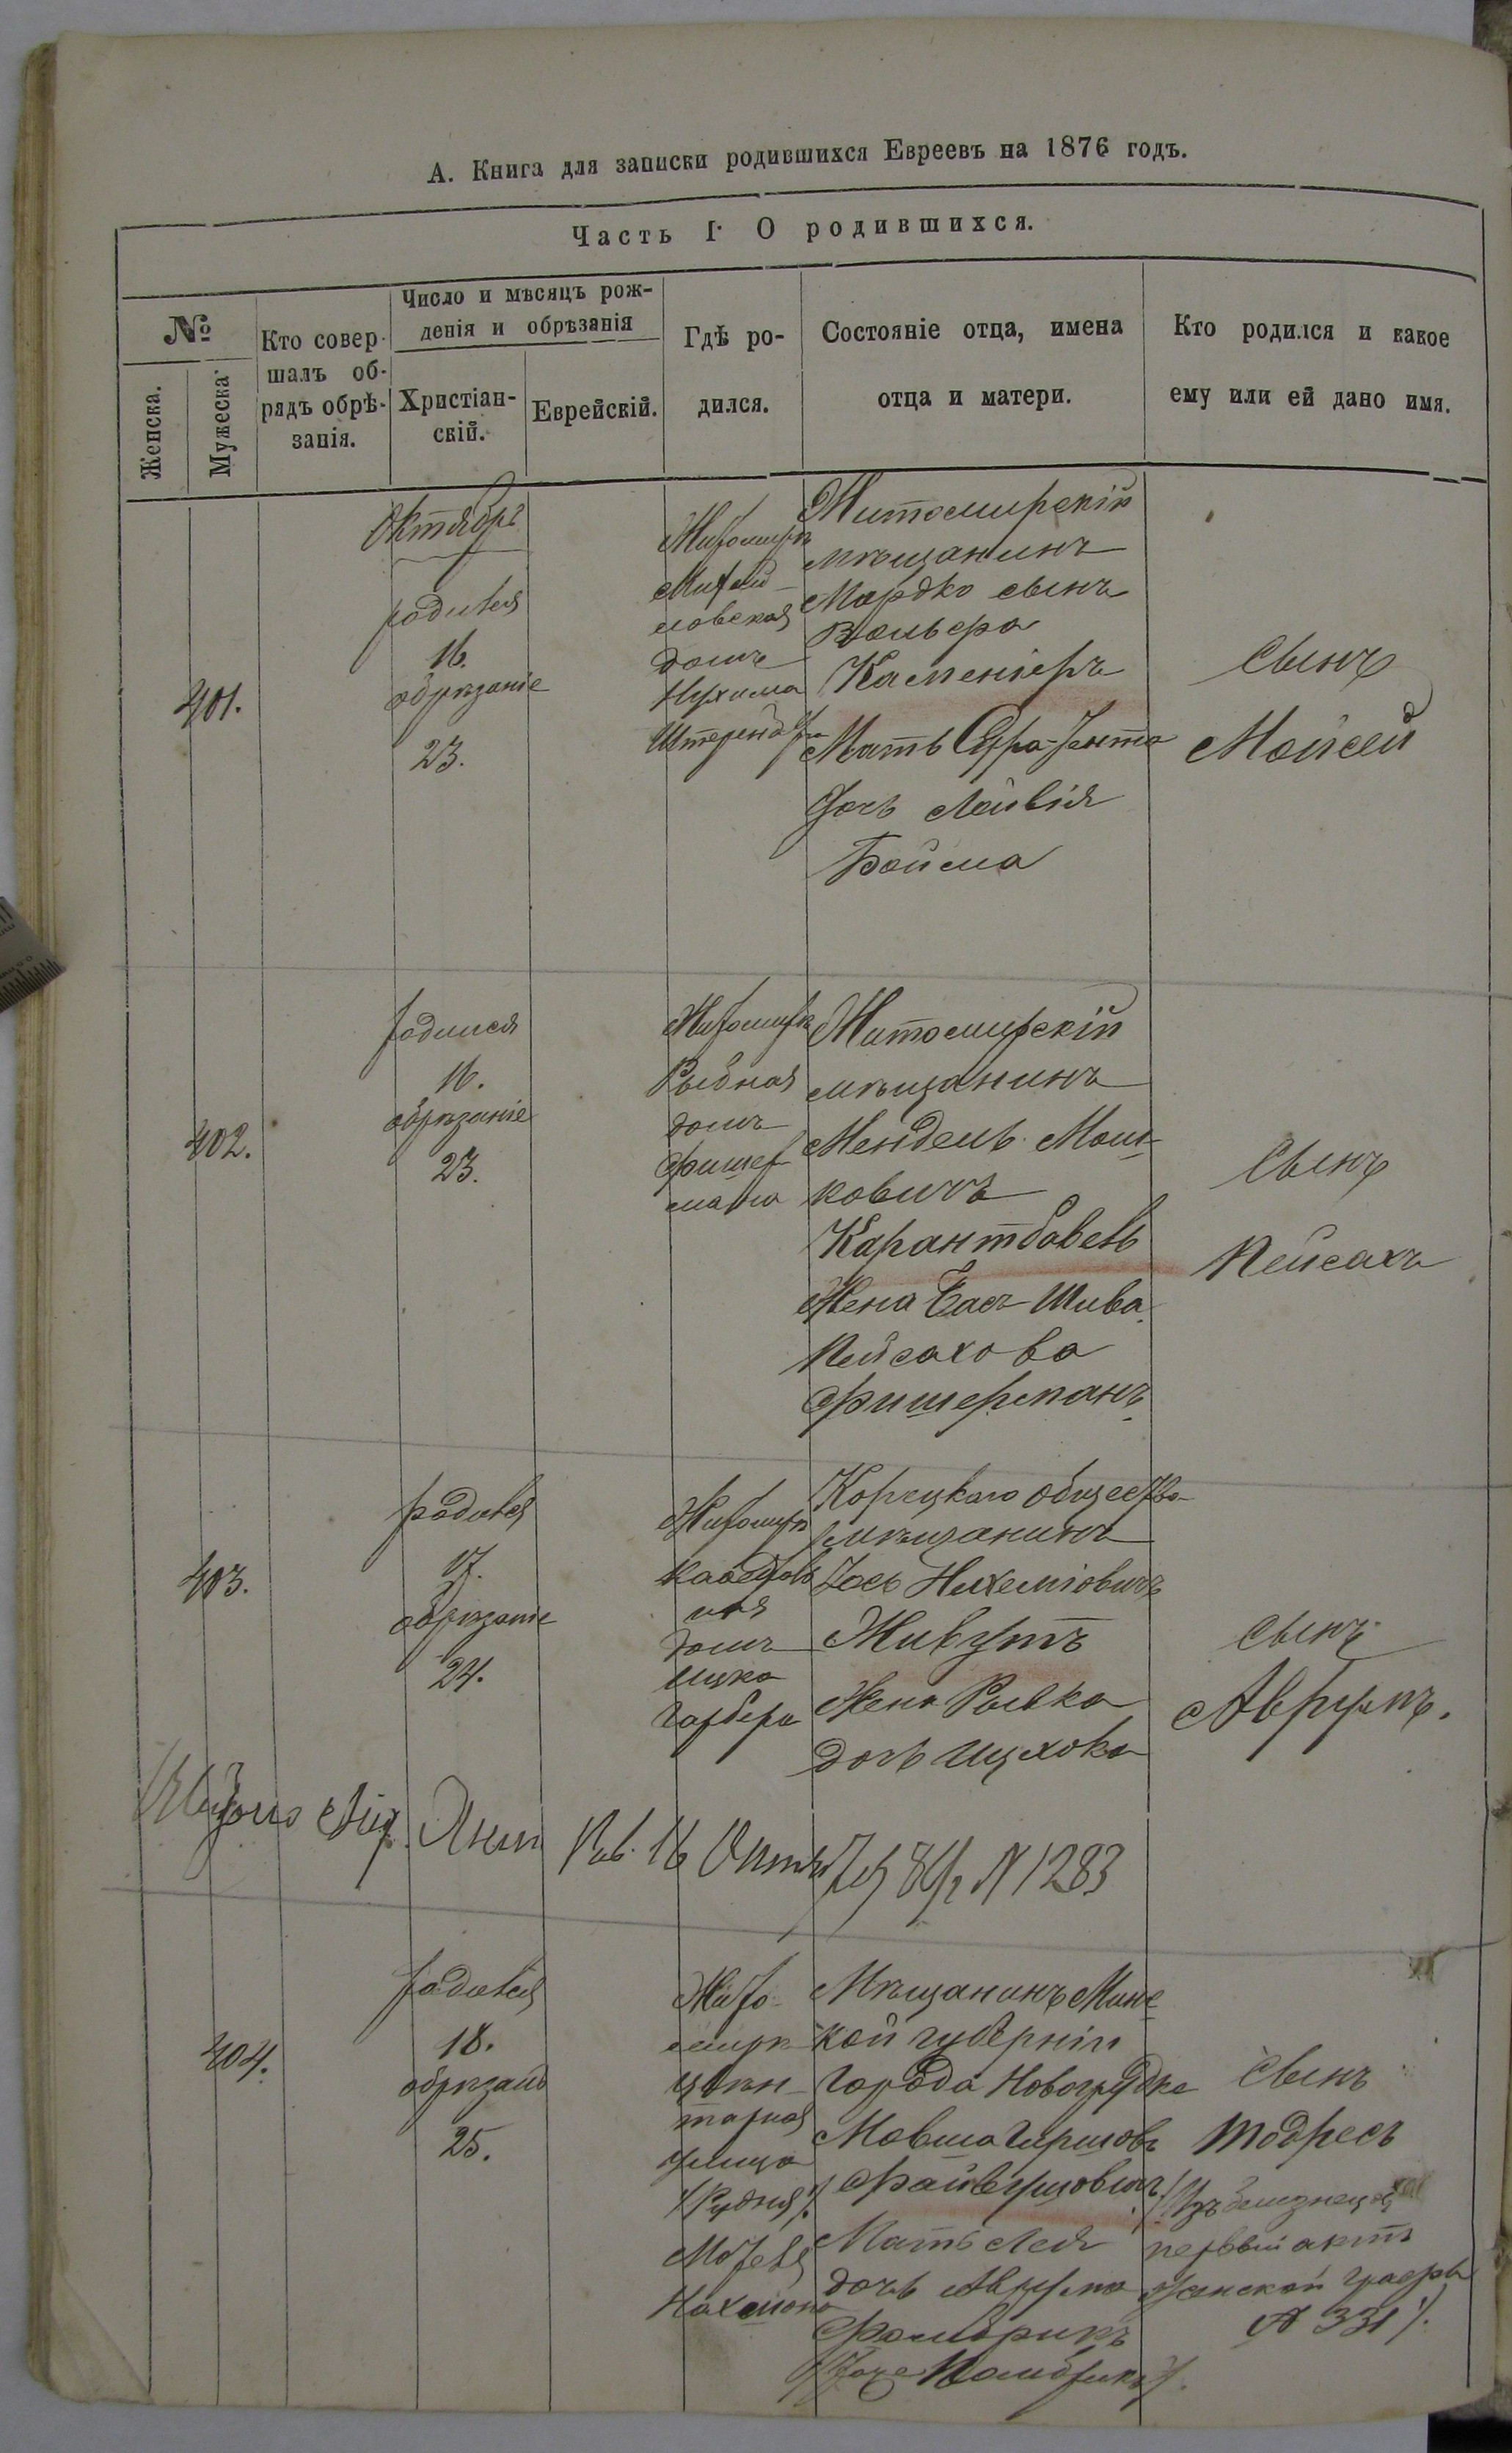 А. Книга для записки родившихся Евреевъ на 1876 годъ.
Часть I О родившихся.
№
Женска.
Мужеска
Кто совер-
шалъ об-
рядъ обрѣ-
занія.
Число и мѣсяцъ рож-
денія и обрѣзанія
Христіан-
скій.
Еврейскій.
Гдѣ ро-
дился.
Состояніе отца, имена
отца и матери.
Кто родился и какое
ему или ей дано имя.
Октябрь
401.
родился
16.
обрѣзаніе
23.
Житомирѣ
Михай-
ловская
домъ
Нухима
Житомирскій
мѣщанинъ
Мордко сынъ
Вольфа
Каменіеръ
Мать Сура-Ента
Дочь Лейвія
Бойма
Сынъ
Мойсей
402.
родился
16.
обрѣзаніе
23.
Житомирѣ
Рыбная
домъ
Фишер-
мана
Житомирскій
мѣщанинъ
Мендель Мош-
ковичъ
Карантбавель
Жена Бася-Шива
Пейсахова
Фишерманъ
Сынъ
Пейсахъ
403.
родился
17.
обрѣзаніе
24.
Житомирѣ
Каѳедраль
ная
домъ
Ицка
Гарбера
Корецкаго общества
мѣщанинъ
Іось Нихеміовичъ
Живутъ
Жена Рывка
дочь Ицхока
сынъ
Аврумъ.
16 Октября 84 г. № 1283
404.
родился
18.
обрѣзаніе
25.
Жито-
мирѣ
тарная
улица
(Рудня)
Мотеля
Нахмана
Мѣщанинъ Минс
кой губерніи
города Новогрудка
Мовша Гиршовъ
Файвушовичъ
Мать Лея
дочь Аврума
Фамбрикъ
Сынъ
Тодресъ
(Изъ близнецовъ
первый актъ
женской графы
№ 331).